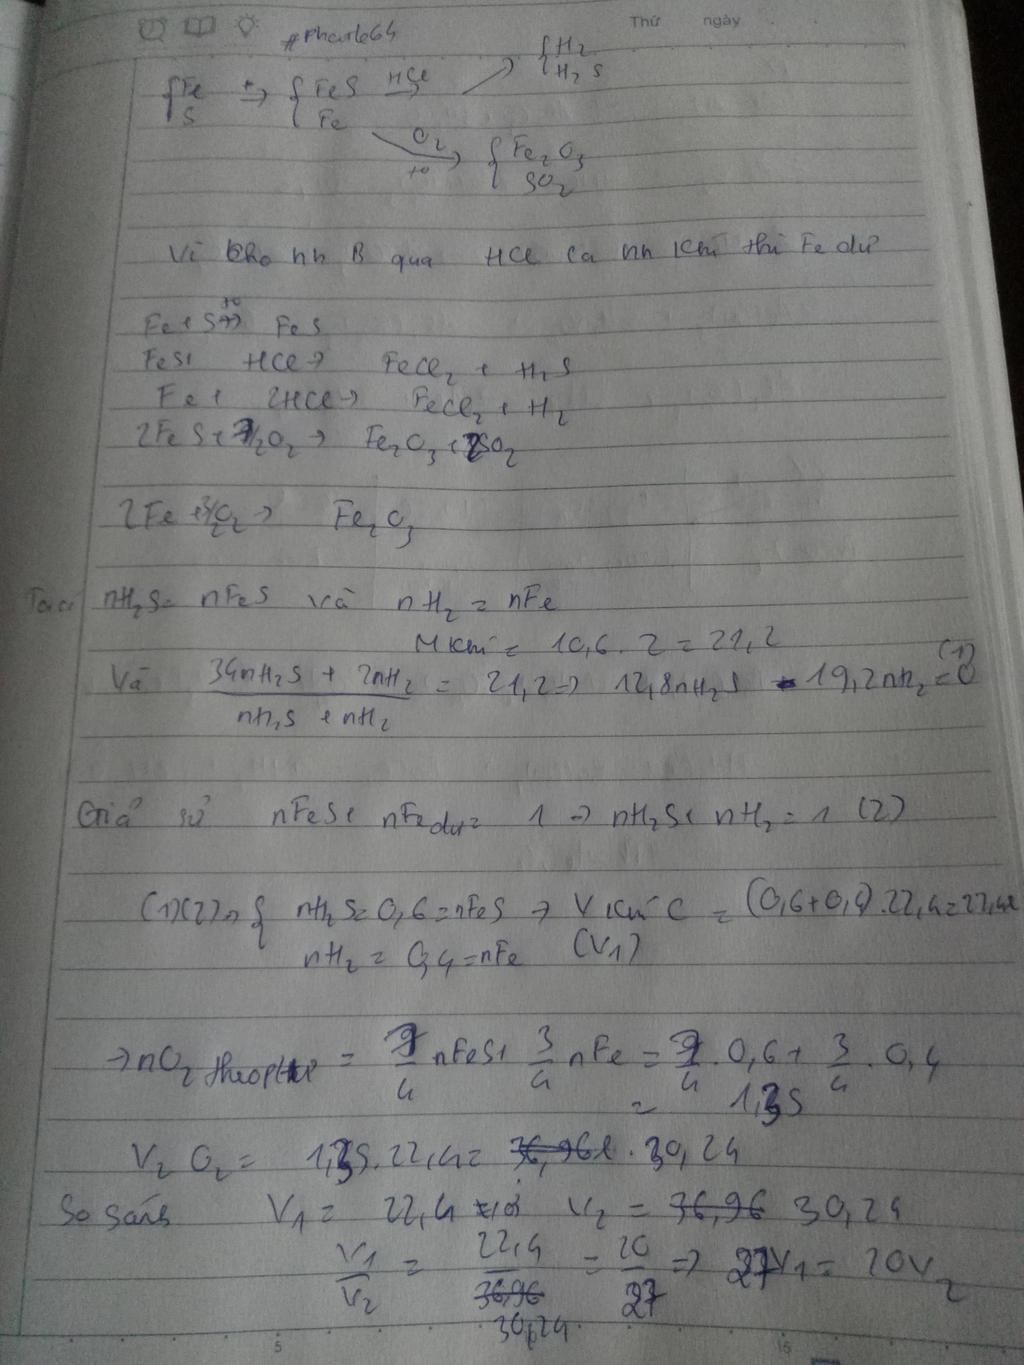 Thứ ngày
#Pharte64
{Fe S →t° {FeS Fe HCl→ {H2 H2S
O2 →t° {Fe2O3 SO2
Vì cho hh B qua HCl ra hh khí thì Fe dư
Fe + S →t° FeS
FeS+ HCl → FeCl2 + H2S
Fe + 2HCl → FeCl2 + H2
2FeS + 7/2O2 → Fe2O3 + 2SO2
2Fe + 3/2O2 → Fe2O3
Ta có nH2S = nFeS và nH2 = nFe
M khí = 10,6 . 2 = 21,2
Và (34nH2S + 2nH2)/(nH2S + nH2) = 21,2 => 12,8nH2S - 19,2nH2 = 0 (1)
Giả sử nFeS + nFe dư = 1 → nH2S + nH2 = 1 (2)
(1)(2) → { nH2S = 0,6 = nFeS => V khí C = (0,6+0,4).22,4 = 22,4l
nH2 = 0,4 = nFe (V1)
→ nO2 = 7/4 nFeS + 3/4 nFe = 7/4 . 0,6 + 3/4 . 0,4
= 1,35
V2 O2 = 1,35.22,4 = 36,96l . 30,24
So sánh V1 = 22,4 với V2 = 36,96 30,24
V1/V2 = 22,4/36,96 30,24 = 20/27 => 27V1 = 20V2
5 15